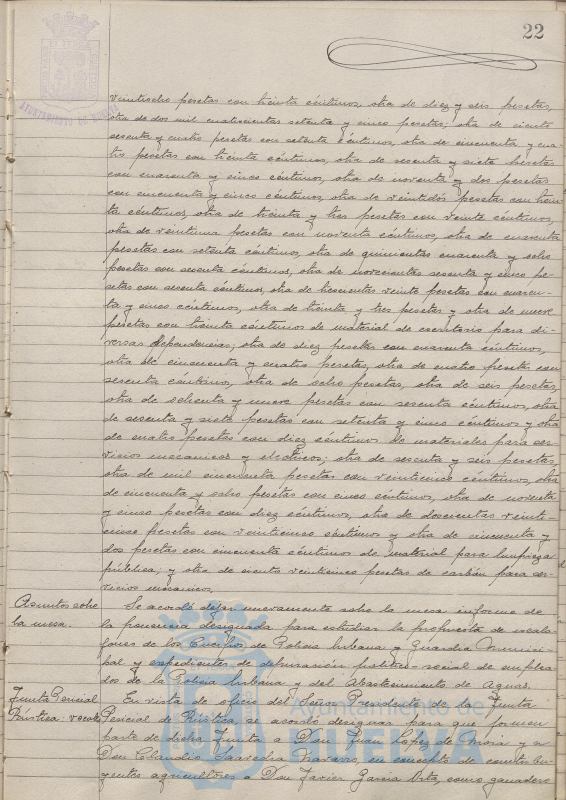 22
AYUNTAMIENTO DE HUELVA
veintiocho pesetas con treinta céntimos, otra de diez y seis pesetas,
otra de dos mil cuatrocientas setenta y cinco pesetas; otra de ciento
sesenta y cuatro pesetas con setenta céntimos, otra de cincuenta y cua-
tro pesetas con treinta céntimos, otra de sesenta y siete pesetas
con cuarenta y cinco céntimos, otra de noventa y dos pesetas
con cincuenta y cinco céntimos, otra de veintidós pesetas con trein-
ta céntimos, otra de treinta y tres pesetas con veinte céntimos,
otra de veintiuna pesetas con noventa céntimos, otra de cuarenta
pesetas con setenta céntimos, otra de quinientas cuarenta y ocho
pesetas con sesenta céntimos, otra de novecientas sesenta y cinco pe-
setas con sesenta céntimos, otra de trescientas veinte pesetas con cuaren-
ta y cinco céntimos, otra de treinta y tres pesetas y otra de nueve
pesetas con treinta céntimos de material de escritorio para di-
versas dependencias; otra de diez pesetas con cuarenta céntimos,
otra de cincuenta y cuatro pesetas, otra de cuatro pesetas con
sesenta céntimos, otra de ocho pesetas, otra de seis pesetas,
otra de ochenta y nueve pesetas con sesenta céntimos, otra
de sesenta y siete pesetas con setenta y cinco céntimos y otra
de cuatro pesetas con diez céntimos de materiales para ser-
vicios mecánicos y eléctricos; otra de sesenta y seis pesetas,
otra de mil cincuenta pesetas con veinticinco céntimos, otra
de cincuenta y ocho pesetas con cinco céntimos, otra de noventa
y cinco pesetas con diez céntimos, otra de doscientas veinti-
cinco pesetas con veinticinco céntimos y otra de cincuenta y
dos pesetas con cincuenta céntimos de material para limpieza
pública; y otra de ciento veinticinco pesetas de carbón para ser-
vicios mecánicos.
Asuntos sobre
la mesa.
Se acordó dejar nuevamente sobre la mesa informe de
la ponencia designada para estudiar la propuesta de escala-
fones de los Cuerpos de Policía Urbana y Guardia Munici-
pal y expedientes de depuración político-social de emplea-
dos de la Policía Urbana y del Abastecimiento de Aguas.
Junta Pericial
Rústica: vocales
En vista de oficio del Señor Presidente de la Junta
Pericial de Rústica, se acordó designar para que formen
parte de dicha Junta a Don Juan López de Mora y a
Don Claudio Saavedra Navarro, en concepto de contribu-
yentes agricultores a Don Javier García Orta, como ganadero
Ayuntamiento de
HUELVA